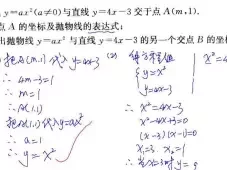 y=ax²(a≠0)与直线 y=4x-3 交于点 A(m,1).
点 A 的坐标及抛物线的表达式;
出抛物线 y=ax² 与直线 y=4x-3 的另一个交点 B 的坐标
把A(m,1)代入y=4x-3
∴ 4m-3=1
∴ m=1
∴ A(1,1)
把A(1,1)代入y=ax²
∴ a=1
∴ y=x²
(2)
{ y=x²
y=4x-3
∴ x²=4x-3
x²-4x+3=0
(x-3)(x-1)=0
x₁=3. x₂=1
∴ 当x=3时, y=9
x²=4